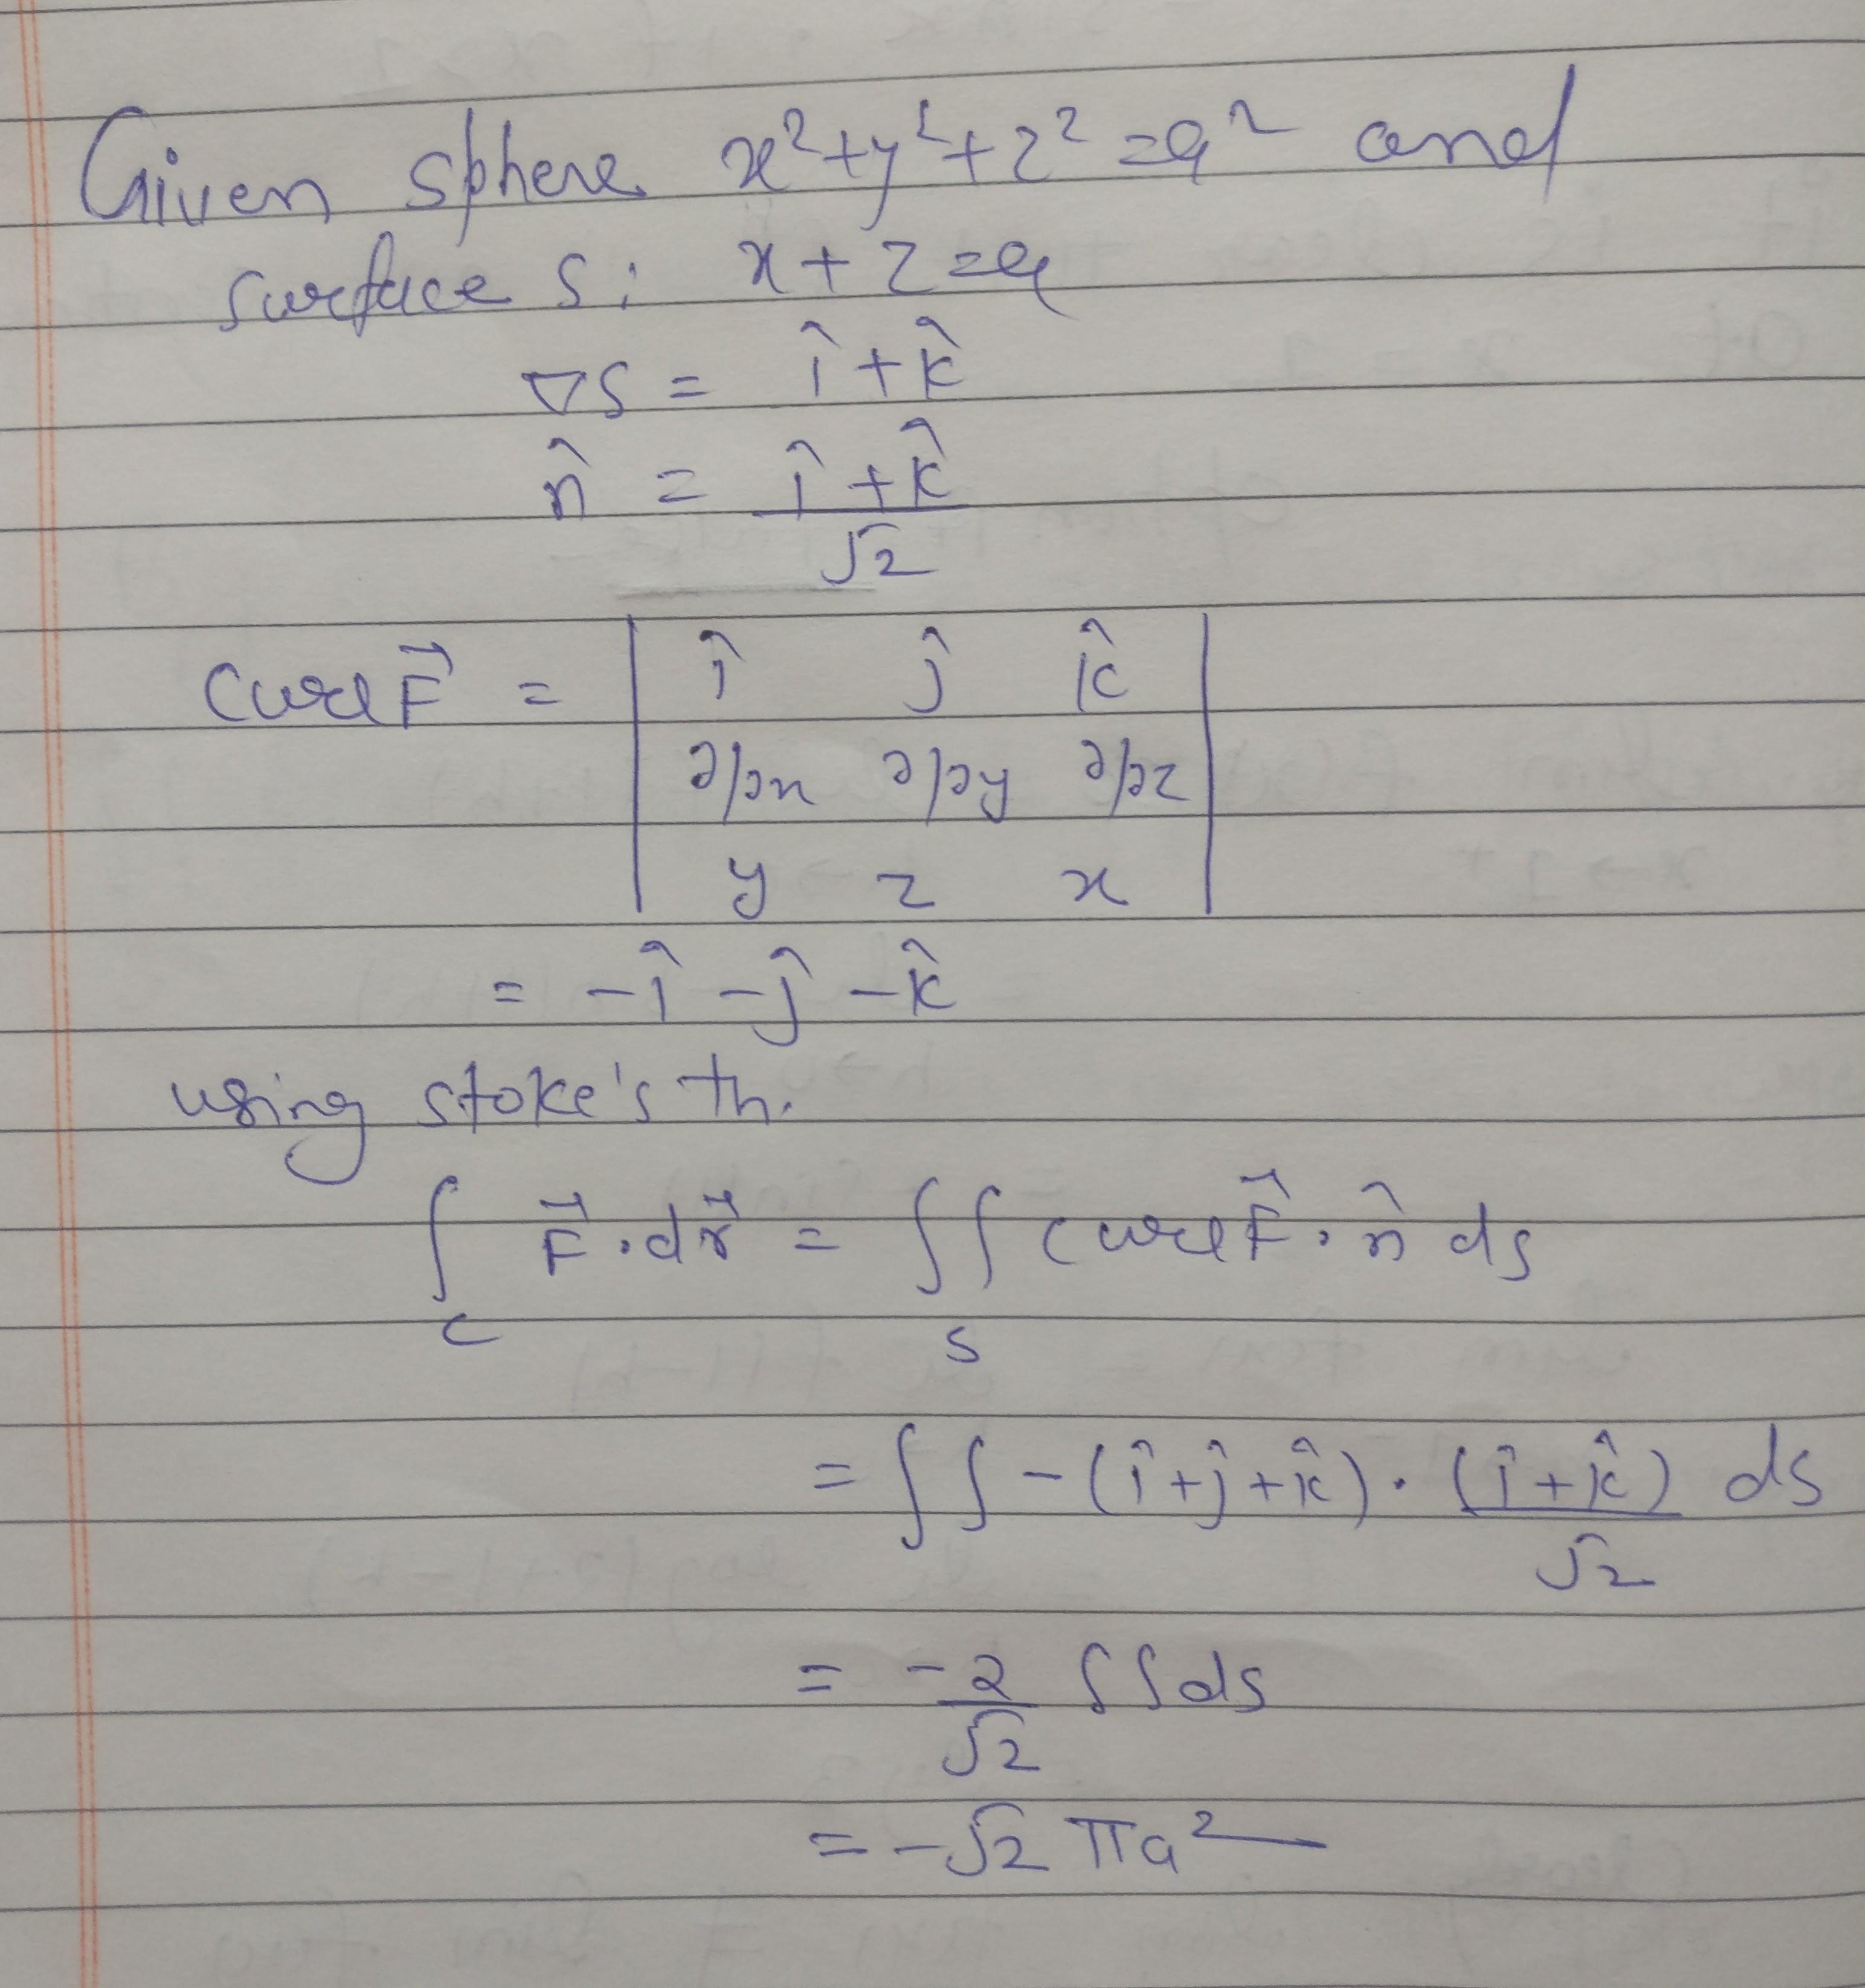 Given sphere x²+y²+z²=a² and
surface S: x+z=a
∇S = î+k̂
n̂ = (î+k̂)/√2
Curl F⃗ = | î ĵ k̂ |
| ∂/∂x ∂/∂y ∂/∂z |
| y z x |
= -î -ĵ -k̂
using stoke's th.
∫_C F⃗.dr⃗ = ∫∫_S curl F⃗.n̂ ds
= ∫∫ -(î+ĵ+k̂).(î+k̂)/√2 ds
= -2/√2 ∫∫ds
= -√2 πa²